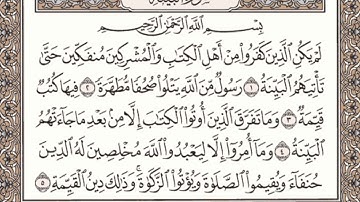 بِسْمِ اللَّهِ الرَّحْمَٰنِ الرَّحِيمِ
لَمْ يَكُنِ الَّذِينَ كَفَرُوا مِنْ أَهْلِ الْكِتَابِ وَالْمُشْرِكِينَ مُنفَكِّينَ حَتَّىٰ
تَأْتِيَهُمُ الْبَيِّنَةُ ١ رَسُولٌ مِّنَ اللَّهِ يَتْلُوا صُحُفًا مُّطَهَّرَةً ٢ فِيهَا كُتُبٌ
قَيِّمَةٌ ٣ وَمَا تَفَرَّقَ الَّذِينَ أُوتُوا الْكِتَابَ إِلَّا مِنۢ بَعْدِ مَا جَاءَتْهُمُ
الْبَيِّنَةُ ٤ وَمَا أُمِرُوا إِلَّا لِيَعْبُدُوا اللَّهَ مُخْلِصِينَ لَهُ الدِّينَ
حُنَفَاءَ وَيُقِيمُوا الصَّلَوٰةَ وَيُؤْتُوا الزَّكَوٰةَ ۚ وَذَٰلِكَ دِينُ الْقَيِّمَةِ ٥